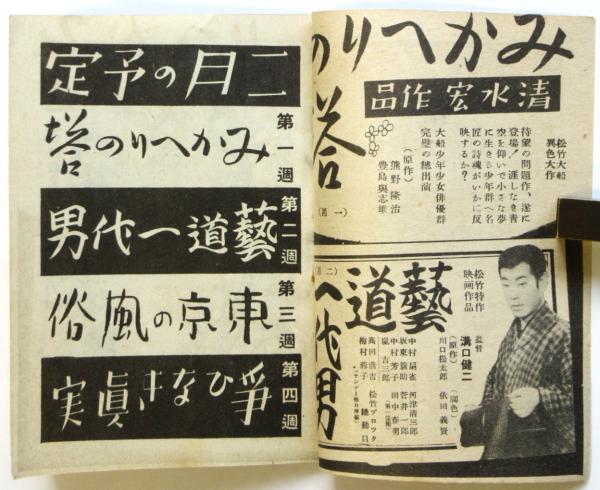 みかへりの塔
清水宏作品
松竹大船
異色大作
待望の問題作、遂に
登場！涯しなき青
空を仰いで小さな夢
に生きる少年群へ名
匠の詩魂がいかに反
映するか？
大船少年少女俳優群
完璧の總出演
（原作）
熊野隆治
豊島與志雄
（一週）
藝道一代男
（二週）
松竹特作
映画作品
監督
溝口健二
（原作）
川口松太郎
（脚色）
依田義賢
中村扇雀
坂東簑助
中村芳子
嵐吉三郎
高田浩吉
梅村蓉子
河津清三郎
菅井一郎
田中春男
松竹ブロック
總動員
二月の予定
第一週
みかへりの塔
第二週
藝道一代男
第三週
東京の風俗
第四週
爭ひなき眞実